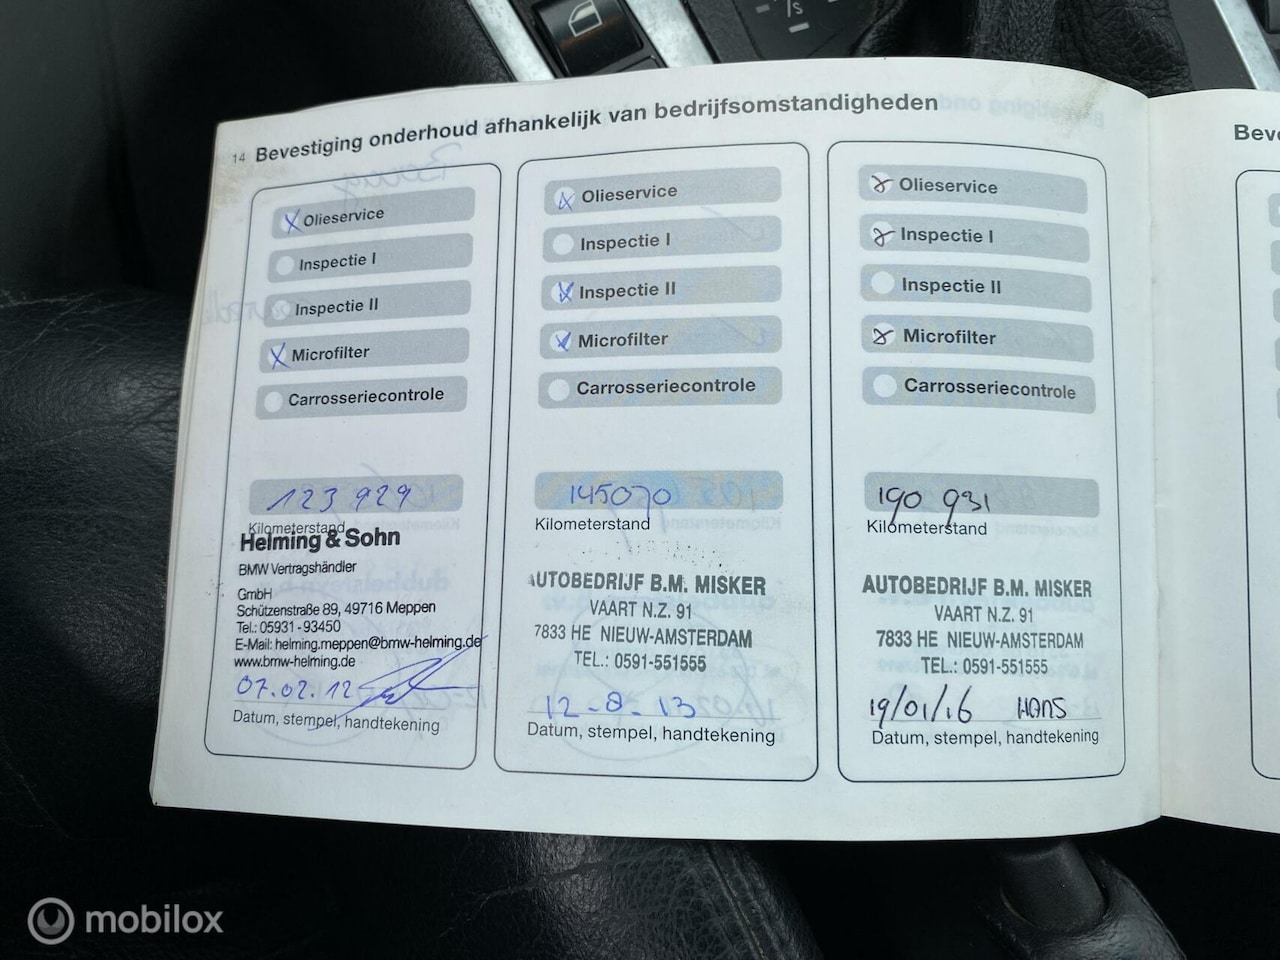 14 Bevestiging onderhoud afhankelijk van bedrijfsomstandigheden
X Olieservice
Inspectie I
Inspectie II
X Microfilter
Carrosseriecontrole
123 929
Kilometerstand
Helming & Sohn
BMW Vertragshändler
GmbH
Schützenstraße 89, 49716 Meppen
Tel.: 05931 - 93450
E-Mail: helming.meppen@bmw-helming.de
www.bmw-helming.de
07.02.12
Datum, stempel, handtekening
X Olieservice
Inspectie I
X Inspectie II
X Microfilter
Carrosseriecontrole
145070
Kilometerstand
AUTOBEDRIJF B.M. MISKER
VAART N.Z. 91
7833 HE NIEUW-AMSTERDAM
TEL.: 0591-551555
12-8-13
Datum, stempel, handtekening
X Olieservice
X Inspectie I
Inspectie II
X Microfilter
Carrosseriecontrole
190 931
Kilometerstand
AUTOBEDRIJF B.M. MISKER
VAART N.Z. 91
7833 HE NIEUW-AMSTERDAM
TEL.: 0591-551555
19/01/16 HANS
Datum, stempel, handtekening
Beve
mobilox